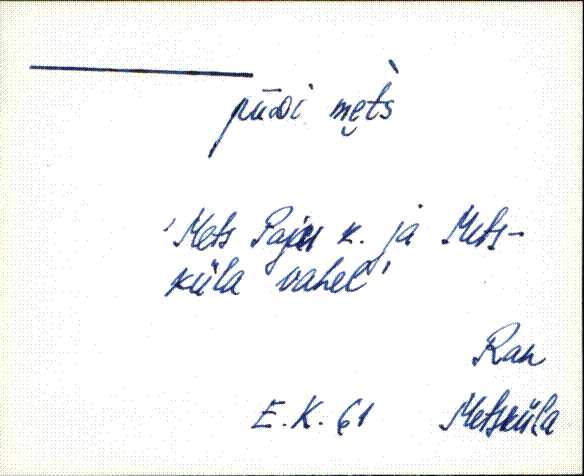 pūoi mets̀
'Mets Paju k. ja Mets-
küla vahel'
Ran
E.K. 61 Metsküla